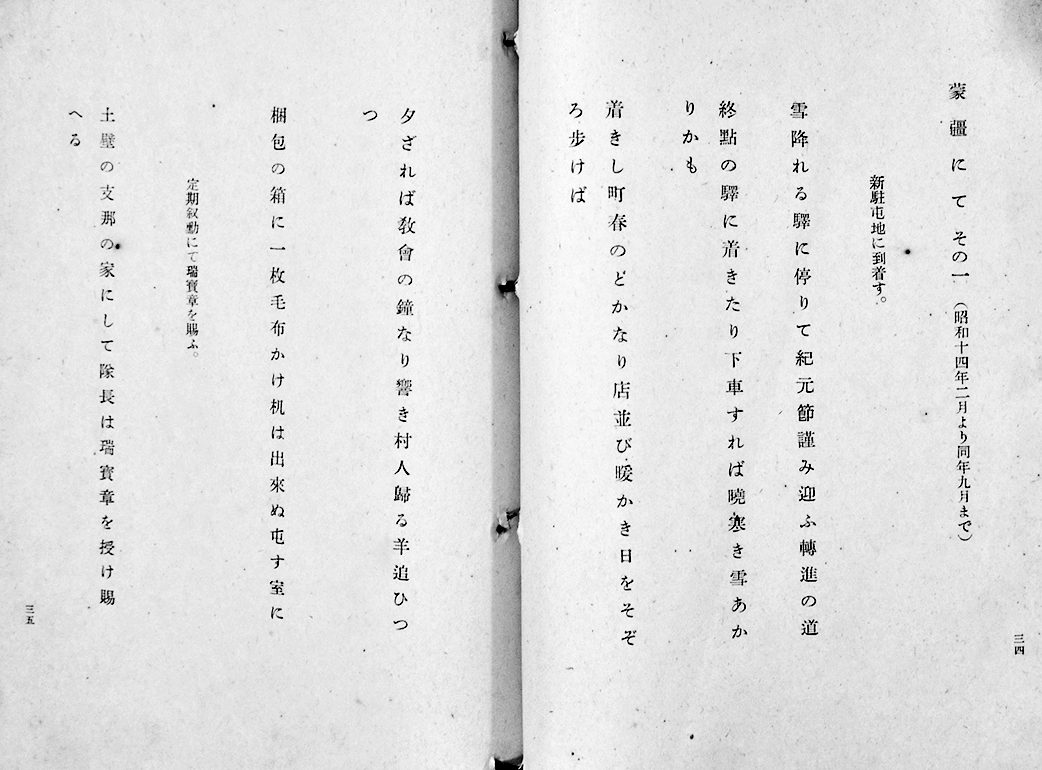 蒙疆にて その一（昭和十四年二月より同年九月まで）
新駐屯地に到着す。
雪降れる驛に停りて紀元節謹み迎ふ轉進の道
終點の驛に着きたり下車すれば曉寒き雪あか
りかも
着きし町春のどかなり店並び暖かき日をそぞ
ろ歩けば
三四
夕ざれば敎會の鐘なり響き村人歸る羊追ひつ
つ
梱包の箱に一枚毛布かけ机は出來ぬ屯す室に
定期叙勳にて瑞寶章を賜ふ。
土壁の支那の家にして隊長は瑞寶章を授け賜
へる
三五